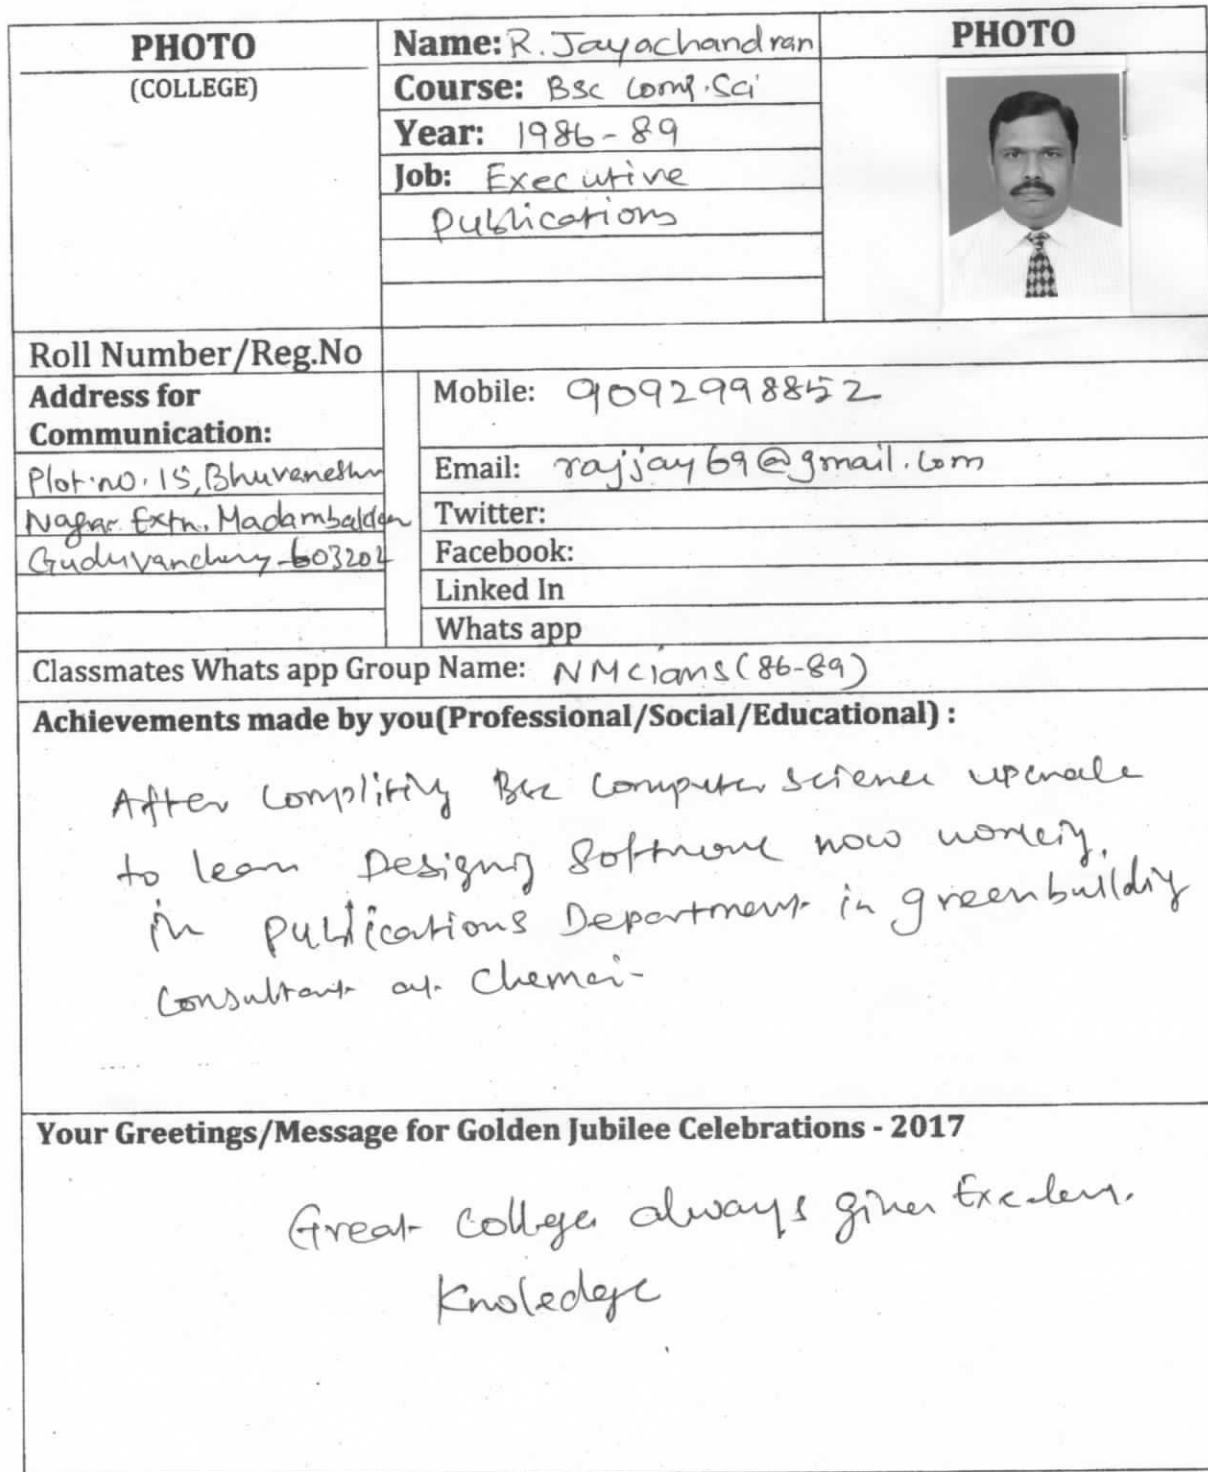 PHOTO
(COLLEGE)
Name: R. Jayachandran
Course: Bsc Comp. Sci
Year: 1986-89
Job: Executive
Publications
PHOTO
Roll Number/Reg.No
Address for
Communication:
Plot.no. 15, Bhuvaneshw
Nagar Extn. Madambakkam
Guduvanchery-603202
Mobile: 9092998852
Email: rajjay69@gmail.com
Twitter:
Facebook:
Linked In
Whats app
Classmates Whats app Group Name: NMCians(86-89)
Achievements made by you(Professional/Social/Educational) :
After Complitily Bsc Computer science
to learn Designing Software now working
in Publications Department in green building
Consultant at Chennai-
Your Greetings/Message for Golden Jubilee Celebrations - 2017
Great College always gives
Knoledge